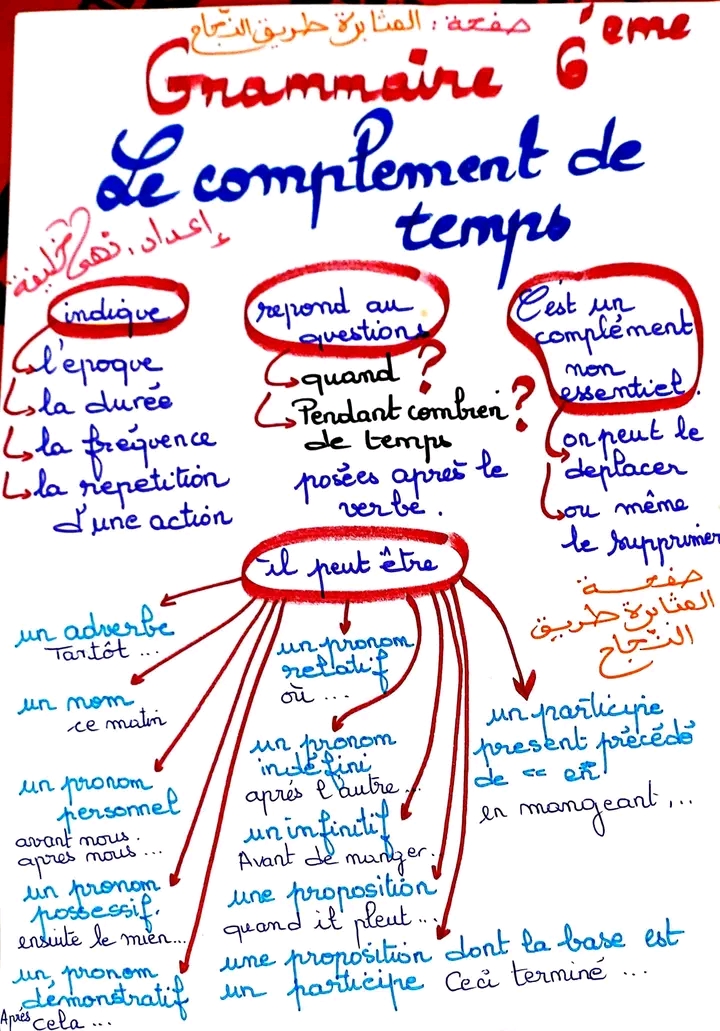 صفحة : المثابرة طريق النّجاح
Grammaire 6ème
Le complement de
temps
إعداد . نهى خليفة
indique
l'époque
la durée
la fréquence
la répetition
d'une action
repond au
questions
quand ?
Pendant combien ?
de temps
posées après le
verbe .
C'est un
complément
non
essentiel .
on peut le
deplacer
ou même
le supprimer
صفحة
المثابرة طريق
النّجاح
il peut être
un adverbe
Tartôt ...
un nom
ce matin
un pronom
personnel
avant nous .
après nous ...
un pronom
possessif.
ensuite le mien...
un pronom
démonstratif
Après cela ...
un pronom
relatif
où ...
un pronom
indéfini
après l'autre ...
un infinitif
Avant de manger .
une proposition
quand il pleut ...
une proposition dont la base est
un participe Ceci terminé ...
un participe
present précédé
de "en"
en mangeant ...